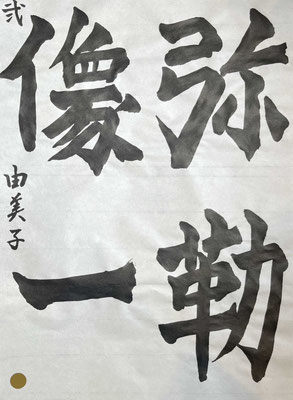 弥勒
像一
弐 由美子